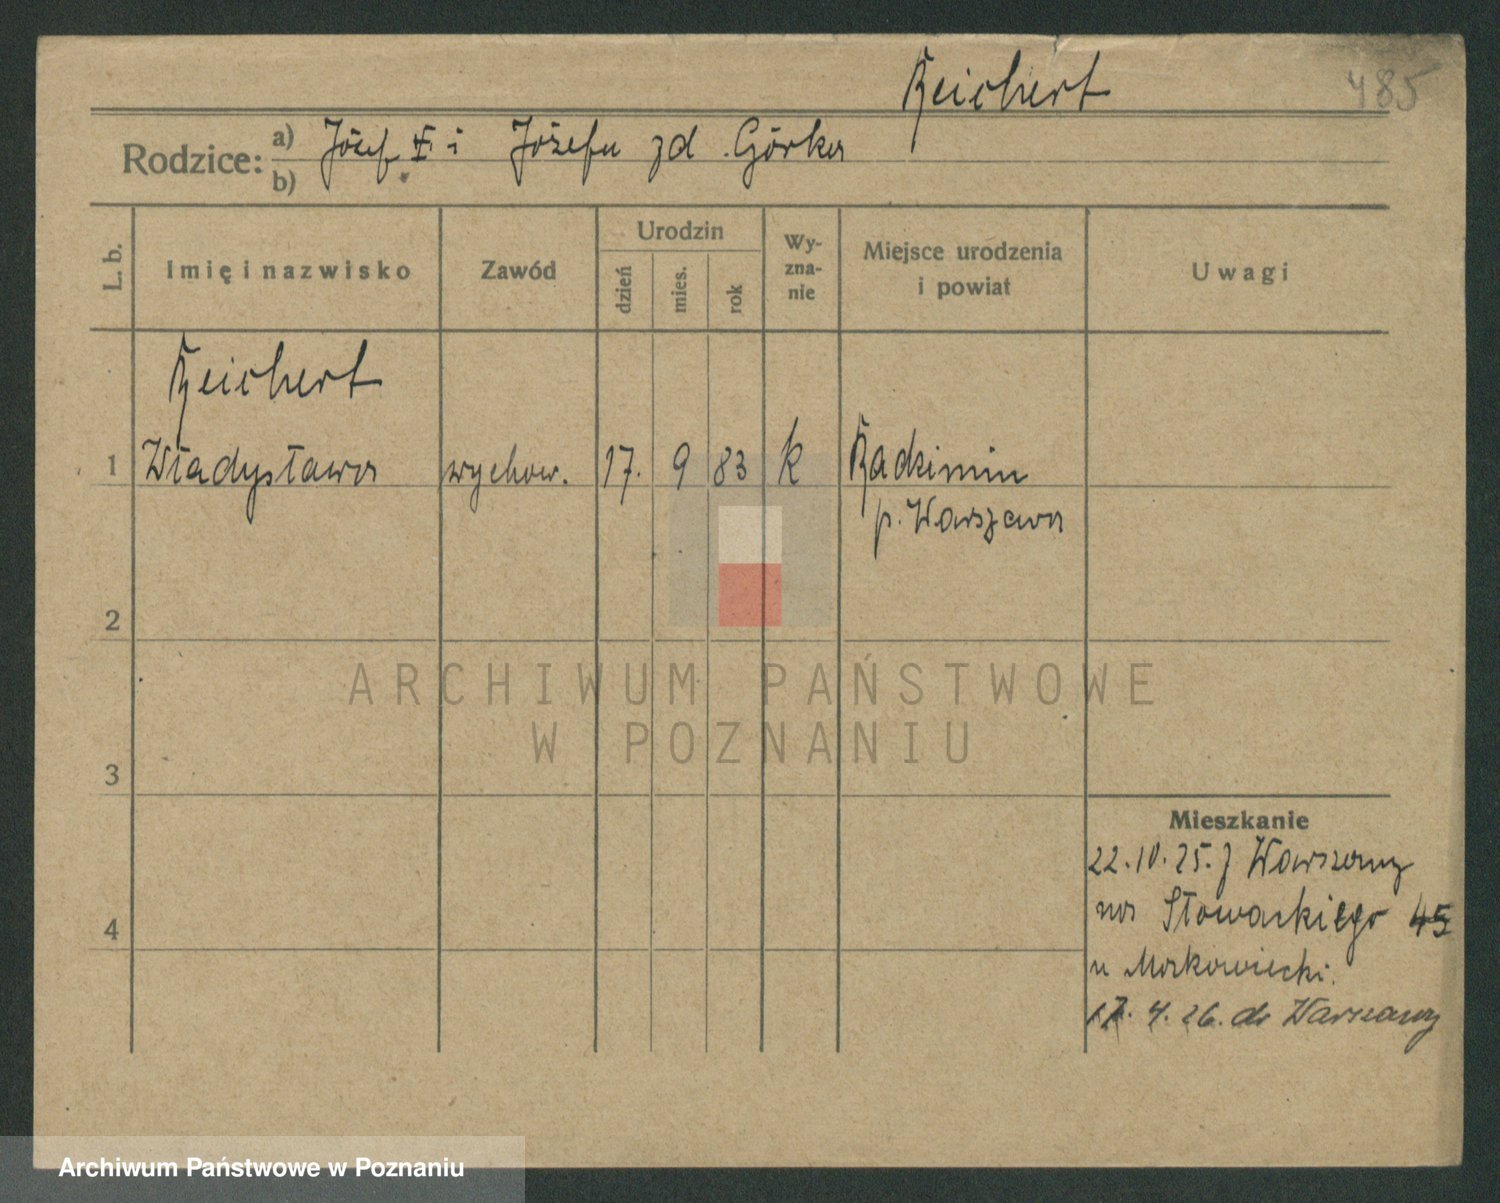 Reichert
485
Rodzice:
a) Józef i Józefa zd. Górka
b)
L. b.
Imię i nazwisko
Zawód
Urodzin
dzień
mies.
rok
Wy-
zna-
nie
Miejsce urodzenia
i powiat
Uwagi
Reichert
1 Władysława wychow. 17. 9 83 k Radzimin
p. Warszawa
2
3
4
Mieszkanie
22.10.25. z Warszawy
na Słowackiego 45
u Morkowiecki.
17. 4. 26. do Warszawy
ARCHIWUM PAŃSTWOWE
W POZNANIU
Archiwum Państwowe w Poznaniu